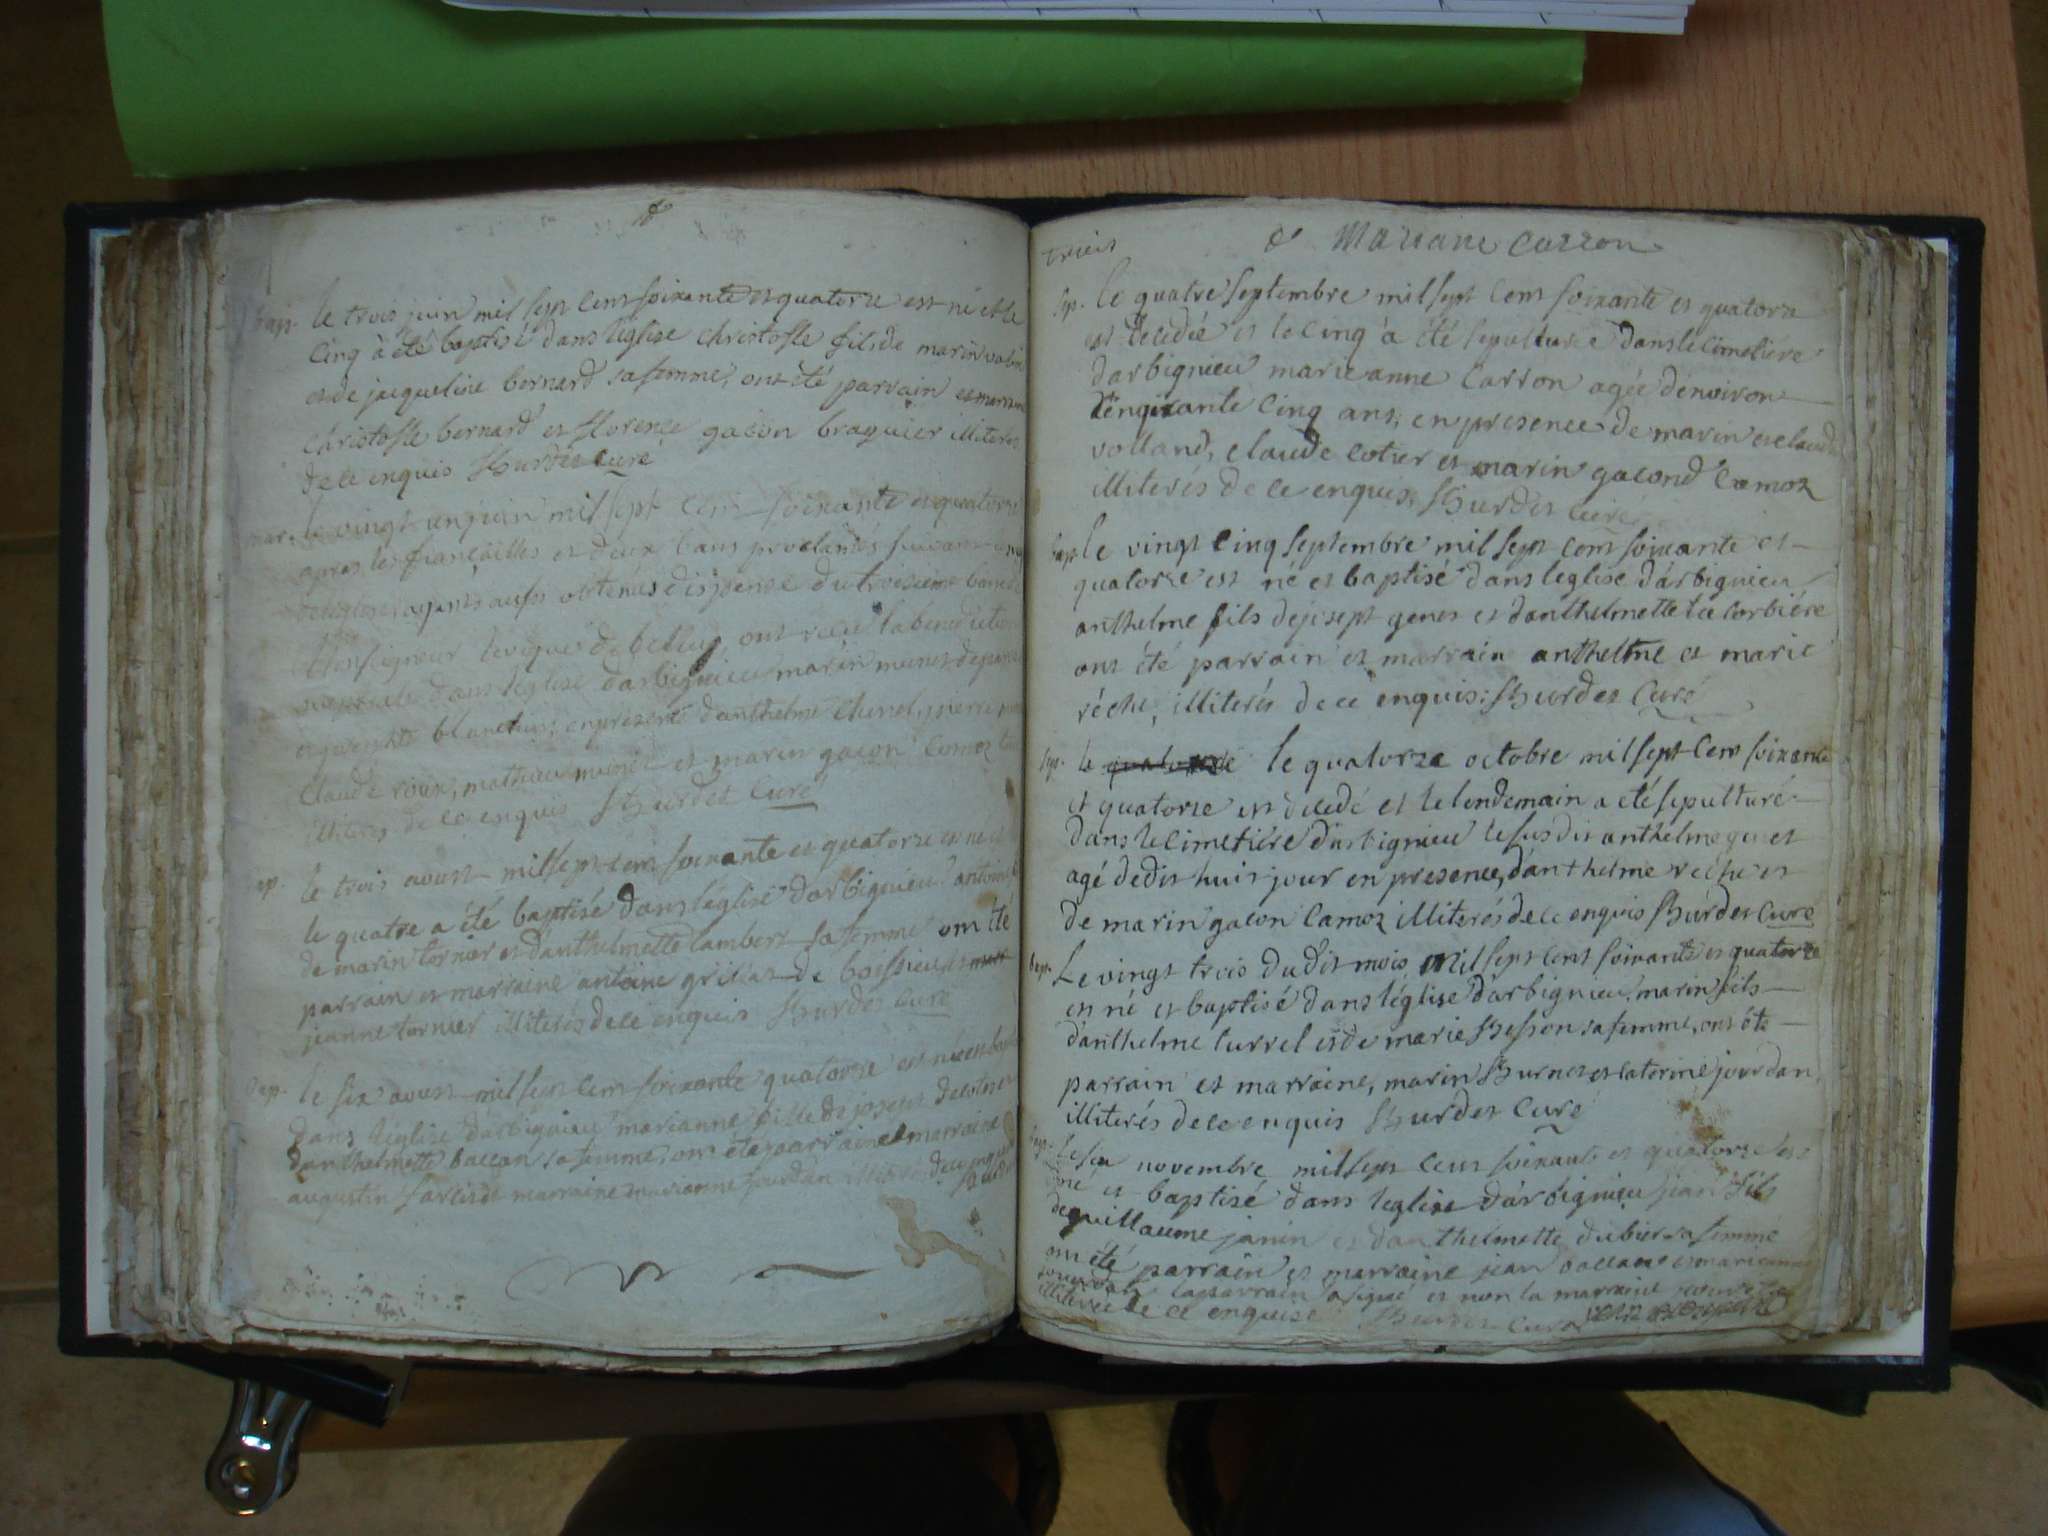 bap. le trois juin mil sept cent soixante et quatorze est né et le
cinq à été baptisé dans léglise christofle fils de marin volin
et de jacqueline bernard sa femme, ont été parrain et marraine
christofle bernard et florence gacon braquier illiterés
de ce enquis Hurdet curé
mar. le vingt un juin mil sept cent soixante et quatorze
apres les fiançailles et deux bans proclamés suivant
ayants aussi obtenus dispense du troisieme ban de
Monseigneur leveque de belley, ont recu la benediction
dans léglise darbignieu marin munet
blanchin; en presence danthelme thenel, pierre
claude roux, mathieu munet et marin gacon camoz
illiterés de ce enquis Hurdet Curé
ap. le trois aoust mil sept cent soixante et quatorze est né et
le quatre a été baptisé dans léglise darbignieu antoine
de marin tornier et danthelmette lambert sa femme ont été
parrain et marraine antoine grillet de boissieu et
jeanne tornier illiterés de ce enquis Hurdet Curé
bap. le six aoust mil sept cent soixante quatorze est née et
dans léglise darbignieu marianne fille de joseph
danthelmette baccan sa femme, ont été parrain et marraine
augustin marraine marianne jourdan de ce enquis
trieis & Mariane Carron
sep. le quatre septembre mil sept cent soixante et quatorze
est decedée et le cinq à été sepulturée dans le cimetiére
darbignieu marie anne Carron agée denviron
cinq ans, en presence de marin et claude
volland, claude cotier et marin gacond camoz
illiterés de ce enquis, Hurdet curé
bap. le vingt cinq septembre mil sept cent soixante et
quatorze est né et baptisé dans leglise dárbignieu
anthelme fils de genet et danthelmette corbiére
ont été parrain et marraine anthelme et marie
réche, illiterés de ce enquis: Hurdet Curé
sep. le quatorze le quatorze octobre mil sept cent soixante
et quatorze est decedé et le lendemain a été sepulturé
dans le cimetiére darbignieu le susdit anthelme genet
agé de dix huit jour en presence, danthelme reche et
de marin gacon camoz illiterés de ce enquis Hurdet Curé
bap. Le vingt trois dudit mois mil sept cent soixante et quatorze
est né et baptisé dans léglise darbignieu, marin fils
danthelme curvel et de marie besson sa femme, ont été
parrain et marraine, marin Burnet et caterine jourdan
illiterés de ce enquis Hurdet Curé
bap. le six novembre mil sept cent soixante et quatorze est
né et baptisé dans leglise darbignieu jean fils
de guillaume janin et danthelmette dubier sa femme
ont été parrain et marraine jean baccan et marianne
jourdan le parrain a signé et non la marraine
illiterée de ce enquise Hurdet Curé